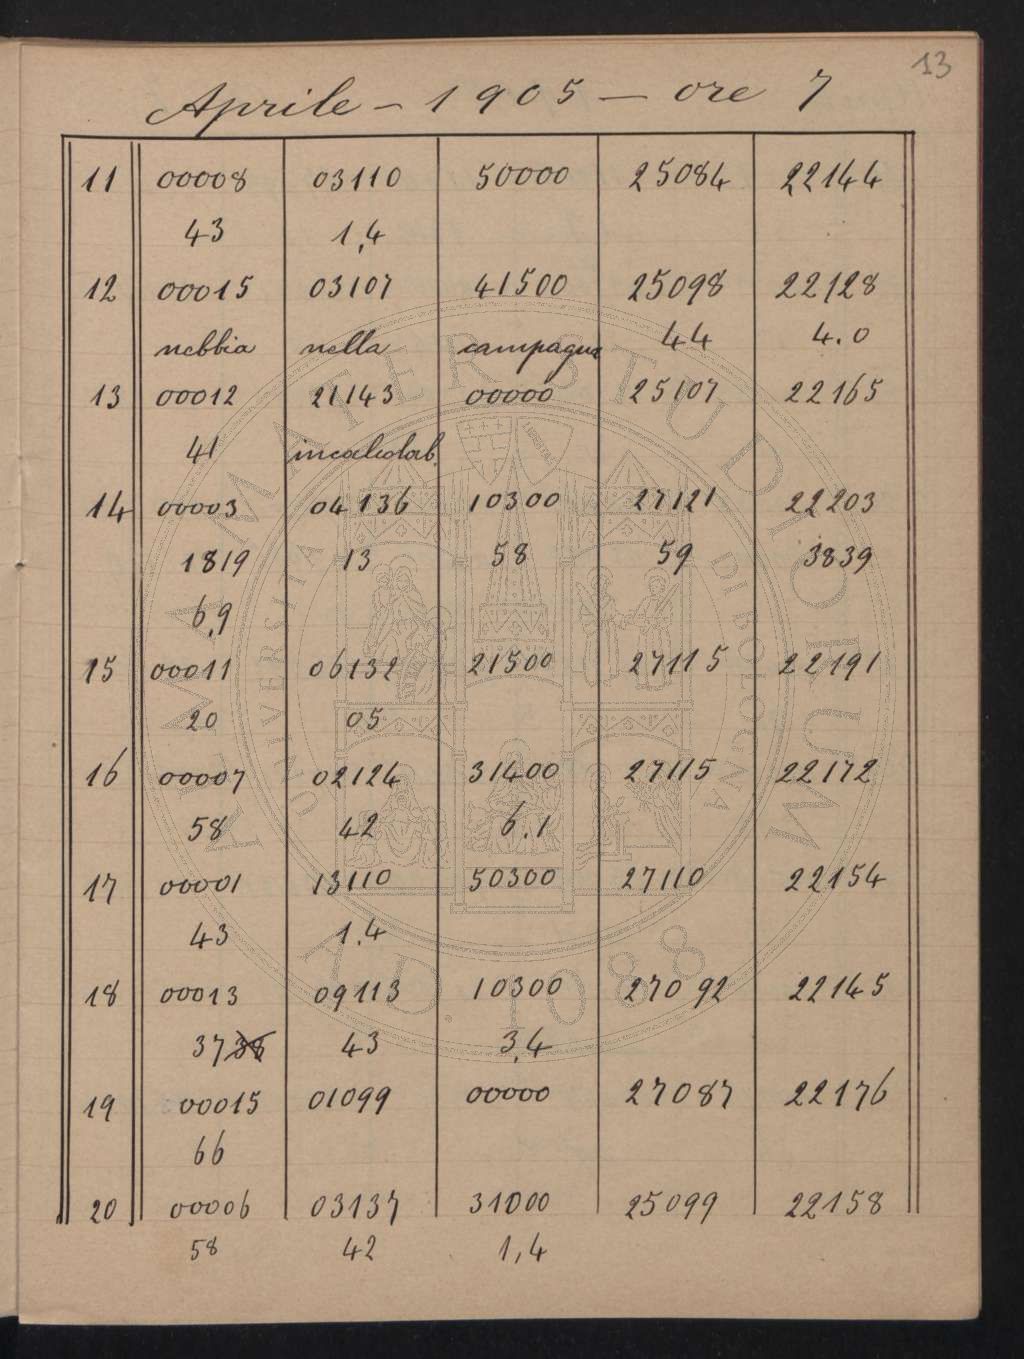 13
Aprile - 1905 - ore 7
11 00008 03110 50000 25084 22144
43 1,4
12 00015 03107 41500 25098 22128
nebbia nella campagna 44 4.0
13 00012 21143 00000 25107 22165
41 incalcolab.
14 00003 04136 10300 27121 22203
1819 13 58 59 3839
6,9
15 00011 06132 21500 27115 22191
20 05
16 00007 02124 31400 27115 22172
58 42 6.1
17 00001 13110 50300 27110 22154
43 1.4
18 00013 09113 10300 27092 22145
37 38 43 3,4
19 00015 01099 00000 27087 22176
66
20 00006 03137 31000 25099 22158
58 42 1,4
ALMA MATER STUDIORUM
UNIVERSITÀ DI BOLOGNA
A.D. 1088